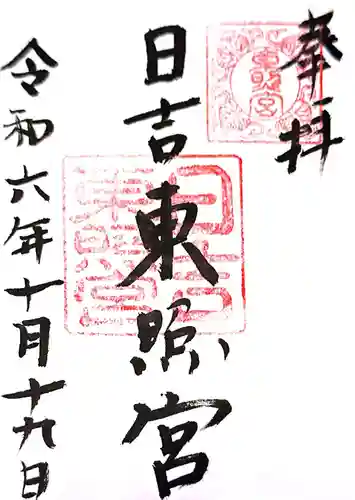 奉拝
日吉東照宮
令和六年十月十九日
東照宮
日吉東照宮